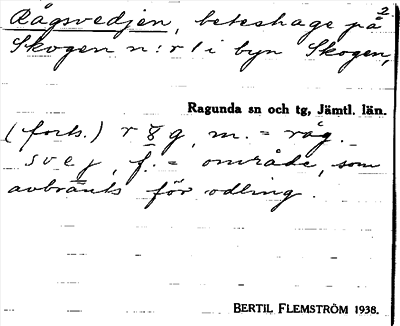 2.
Rågsvedjen, beteshage på
Skogen n:r 1 i byn Skogen,
Ragunda sn och tg, Jämtl. län.
(forts.) r g, m. = råg.
svej, f. = område, som
avbränts för odling.
BERTIL FLEMSTRÖM 1938.